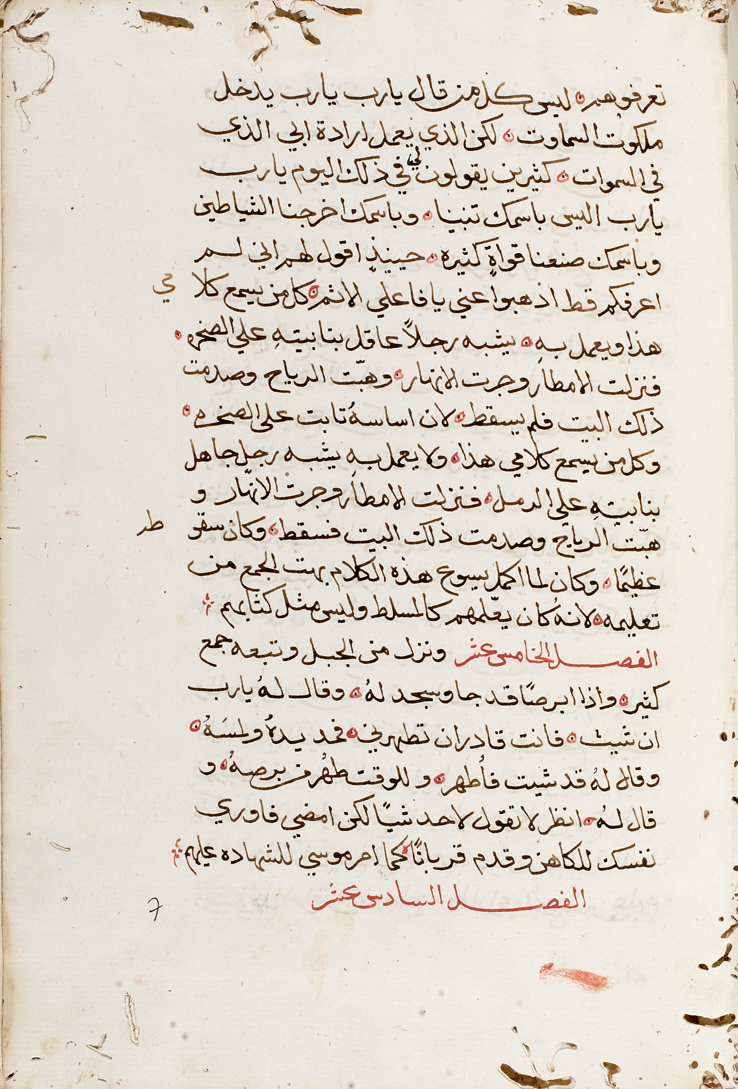 تعرفوهم ۞ ليس كل من قال يارب يارب يدخل
ملكوت السماوت ۞ لكن الذي يعمل ارادة ابي الذي
في السموات ۞ كثيرين يقولون لي في ذلك اليوم يارب
يارب اليس باسمك تنبيا ۞ وباسمك اخرجنا الشياطين
وباسمك صنعنا قواةٍ كثيره ۞ حينيذٍ اقول لهم اني لم
اعرفكم قط اذهبوا عني يافاعلي الاثم ۞ كل من يسمع كلا
مي
هذا ويعمل بهِ ۞ يشبه رجلاً عاقل بنا بيتهِ علي الصخره ۞
فنزلت الامطار وجرت الانهار ۞ وهبّت الرياح وصدمت
ذلك البيت فلم يسقط ۞ لان اساسهُ ثابت علي الصخره ۞
وكل من يسمع كلامي هذا ۞ ولا يعمل بهِ يشبه رجل جاهل
بنا بيتهِ علي الرمل ۞ فنزلت الامطار وجرت الانهار و
هبّت الرياح وصدمت ذلك البيت فسقط ۞ وكان سقو
طه
عظيمًا ۞ وكان لما اكمل يسوع هذه الكلام بهت الجمع من
تعليمه ۞ لانهُ كان يعلّمهم كالمسلط وليس مثل كتابهم
الفصل الخامس عشر ونزل من الجبل وتبعه جمع
كثير ۞ واذا ابرصًا قد جا وسجد لهُ ۞ وقال لهُ يارب
ان شيت ۞ فانت قادر ان تطهرني ۞ فمد يدهُ ولمسَهُ ۞
وقال لهُ قد شيت فأطهر ۞ وللوقت طهُر من برصهُ ۞ و
قال لهُ ۞ انظر لا تقول لاحد شيًا لكن امضي فاوري
نفسك للكاهن وقدم قربانًا ۞ كما امر موسي للشهاده عليهم
الفصل السادس عشر